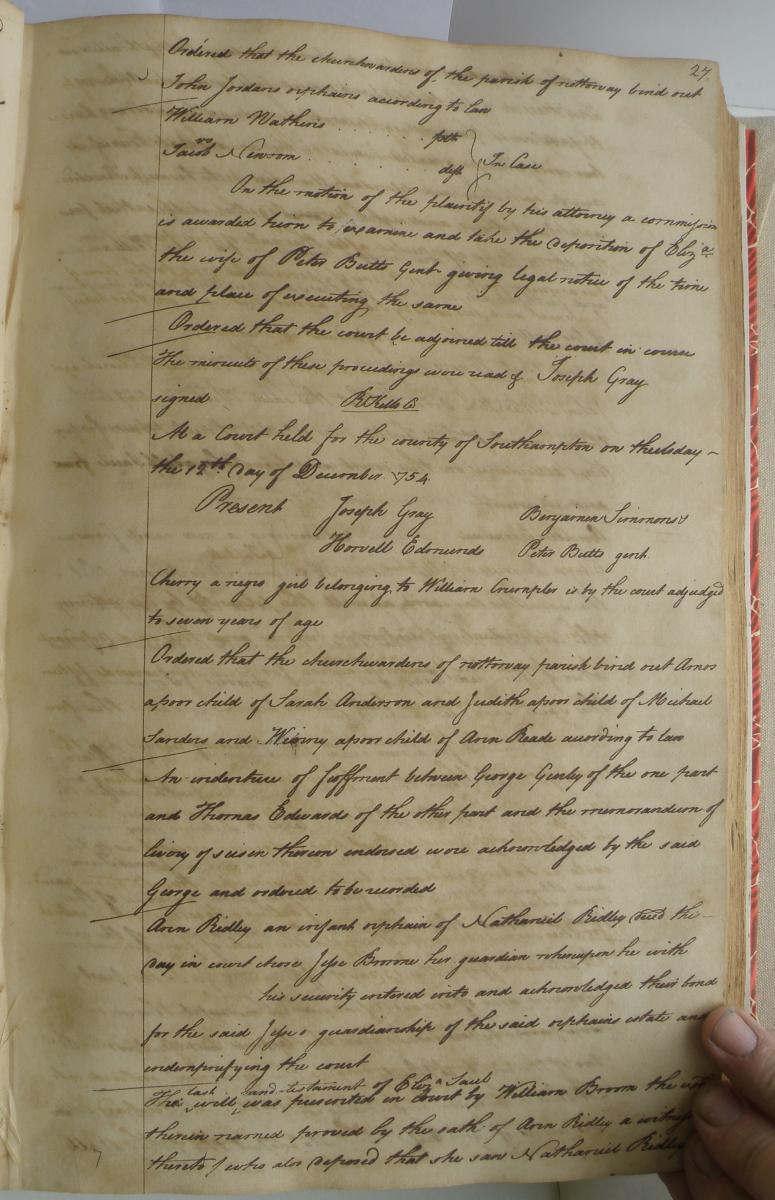 27
Ordered that the churchwardens of the parish of nottoway bind out
John Jordans orphains according to law
William Watkins . . . . . . . plth
vs
Jacob Newsom . . . . . . . deft } In Case
On the motion of the plaintif by his attorney a commission
is awarded him to examine and take the deposition of Eliza
the wife of Peter Butts Gent giving legal notice of the time
and place of executing the same
Ordered that the court be adjorned till the court in course
The minuets of these proceedings were read & Joseph Gray
signed
At a Court held for the county of Southampton on
the 12th Day of December 1754
Present Joseph Gray Benjamin Simmons &
Howell Edmunds Peter Butts gent
Cherry a negro girl belonging to William Crumpler is by the court adjudged
to seven years of age
Ordered that the churchwardens of nottoway parish bind out Amos
a poor child of Sarah Anderson and Judith a poor child of Michael
Sanders and Winny a poor child of Ann Reade according to law
An indenture of feoffment between George Gurley of the one part
and Thomas Edwards of the other part and the memorandum of
livery of seisen thereon endorsed were acknowledged by the said
George and ordered to be recorded
Ann Ridley an infant orphain of Nathaniel Ridley decd the
day in court chose Jesse Browne her guardian whereupon he with
his security entered into and acknowledged their bond
for the said Jesse's guardianship of the said orphains estate and
indemnifying the court
The last will and testament of Eliza Saul
was presented in court by William Broom the
therein named proved by the oath of Ann Ridley a witness
thereto who also deposed that she saw Nathaniel Ridley